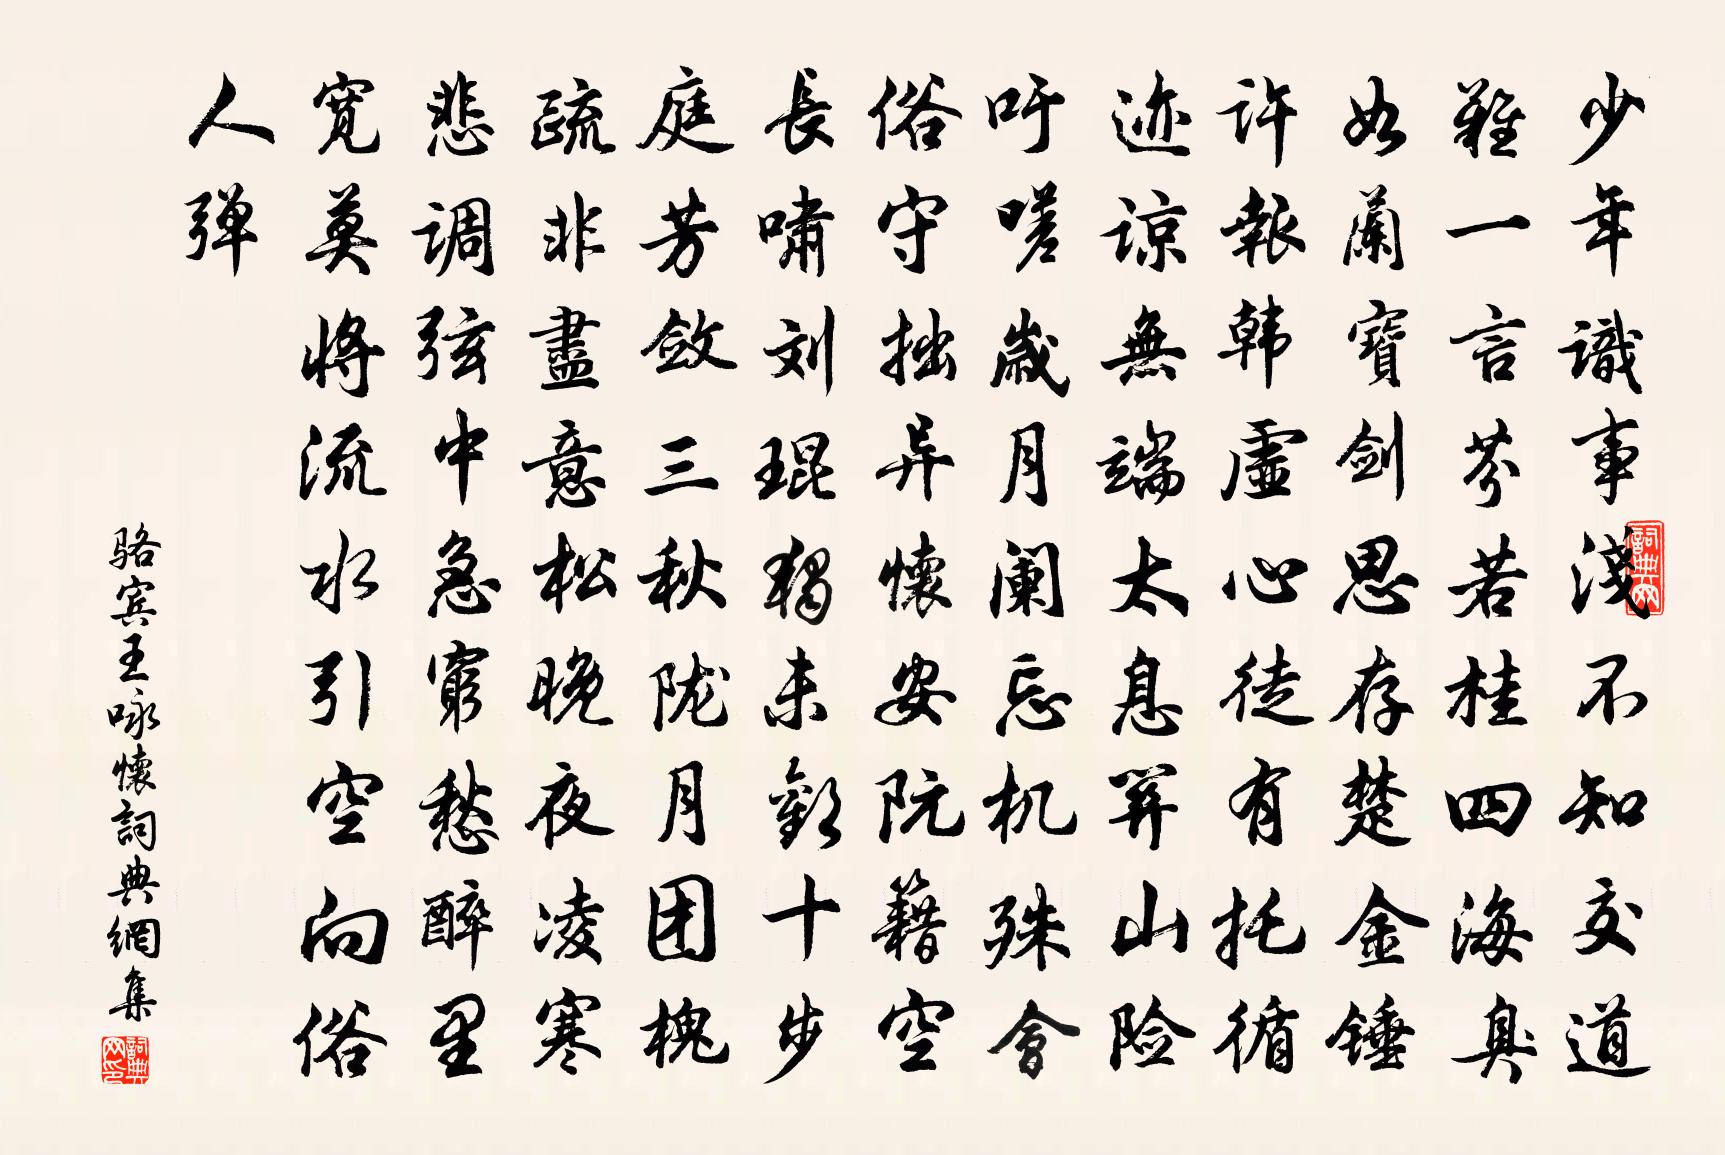 少年識事淺不知交道
難一言芬若桂四海臭
如蘭寶剑思存楚金錘
許報韩虛心徒有托循
迹谅無端太息關山险
吁嗟歲月阑忘机殊會
俗守拙异懷安阮籍空
長嘯刘琨獨未歡十步
庭芳敛三秋陇月团槐
疏非盡意松晚夜凌寒
悲调弦中急窮愁醉里
寬莫將流水引空向俗
人弹
骆宾王咏懷詞典網集
詞典网
詞典网印